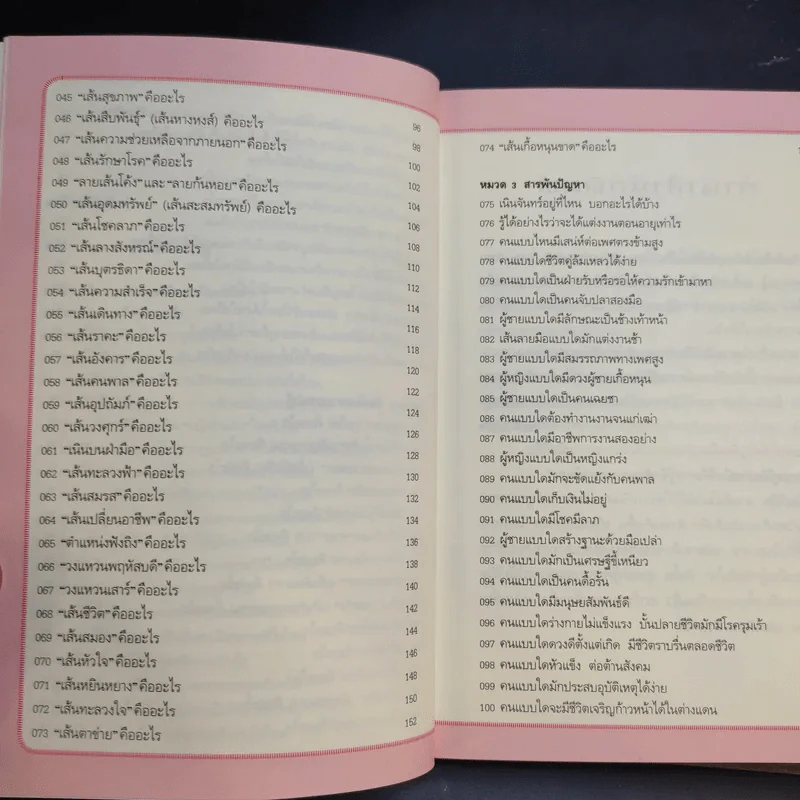 045 "เส้นสุขภาพ" คืออะไร 96
046 "เส้นสืบพันธุ์" (เส้นหางหงส์) คืออะไร 98
047 "เส้นความช่วยเหลือจากภายนอก" คืออะไร 100
048 "เส้นรักษาโรค" คืออะไร 102
049 "ลายเส้นโค้ง" และ "ลายก้นหอย" คืออะไร 104
050 "เส้นอุดมทรัพย์" (เส้นสะสมทรัพย์) คืออะไร 106
051 "เส้นโชคลาภ" คืออะไร 108
052 "เส้นลางสังหรณ์" คืออะไร 110
053 "เส้นบุตรธิดา" คืออะไร 112
054 "เส้นความสำเร็จ" คืออะไร 114
055 "เส้นเดินทาง" คืออะไร 116
056 "เส้นราคะ" คืออะไร 118
057 "เส้นอังคาร" คืออะไร 120
058 "เส้นคนพาล" คืออะไร 122
059 "เส้นอุปถัมภ์" คืออะไร 124
060 "เส้นวงศุกร์" คืออะไร 126
061 "เนินบนฝ่ามือ" คืออะไร 128
062 "เส้นทะลวงฟ้า" คืออะไร 130
063 "เส้นสมรส" คืออะไร 132
064 "เส้นเปลี่ยนอาชีพ" คืออะไร 134
065 "ตำแหน่งพึงถิง" คืออะไร 136
066 "วงแหวนพฤหัสบดี" คืออะไร 138
067 "วงแหวนเสาร์" คืออะไร 140
068 "เส้นชีวิต" คืออะไร 142
069 "เส้นสมอง" คืออะไร 144
070 "เส้นหัวใจ" คืออะไร 146
071 "เส้นหยินหยาง" คืออะไร 148
072 "เส้นทะลวงใจ" คืออะไร 150
073 "เส้นตาข่าย" คืออะไร 152
074 "เส้นเกื้อหนุนขาด" คืออะไร
หมวด 3 สารพันปัญหา
075 เนินจันทร์อยู่ที่ไหน บอกอะไรได้บ้าง
076 รู้ได้อย่างไรว่าจะได้แต่งงานตอนอายุเท่าไร
077 คนแบบไหนมีเสน่ห์ต่อเพศตรงข้ามสูง
078 คนแบบใดชีวิตคู่ล้มเหลวได้ง่าย
079 คนแบบใดเป็นฝ่ายรับหรือรอให้ความรักเข้ามาหา
080 คนแบบใดเป็นคนจับปลาสองมือ
081 ผู้ชายแบบใดมีลักษณะเป็นช้างเท้าหน้า
082 เส้นลายมือแบบใดมักแต่งงานช้า
083 ผู้ชายแบบใดมีสมรรถภาพทางเพศสูง
084 ผู้หญิงแบบใดมีดวงผู้ชายเกื้อหนุน
085 ผู้ชายแบบใดเป็นคนเฉยชา
086 คนแบบใดต้องทำงานงานจนแก่เฒ่า
087 คนแบบใดมีอาชีพการงานสองอย่าง
088 ผู้หญิงแบบใดเป็นหญิงแกร่ง
089 คนแบบใดมักจะขัดแย้งกับคนพาล
090 คนแบบใดเก็บเงินไม่อยู่
091 คนแบบใดมีโชคมีลาภ
092 ผู้ชายแบบใดสร้างฐานะด้วยมือเปล่า
093 คนแบบใดมักเป็นเศรษฐีขี้เหนียว
094 คนแบบใดเป็นคนดื้อรั้น
095 คนแบบใดมีมนุษยสัมพันธ์ดี
096 คนแบบใดร่างกายไม่แข็งแรง บั้นปลายชีวิตมักมีโรครุมเร้า
097 คนแบบใดดวงดีตั้งแต่เกิด มีชีวิตราบรื่นตลอดชีวิต
098 คนแบบใดหัวแข็ง ต่อต้านสังคม
099 คนแบบใดมักประสบอุบัติเหตุได้ง่าย
100 คนแบบใดจะมีชีวิตเจริญก้าวหน้าได้ในต่างแดน